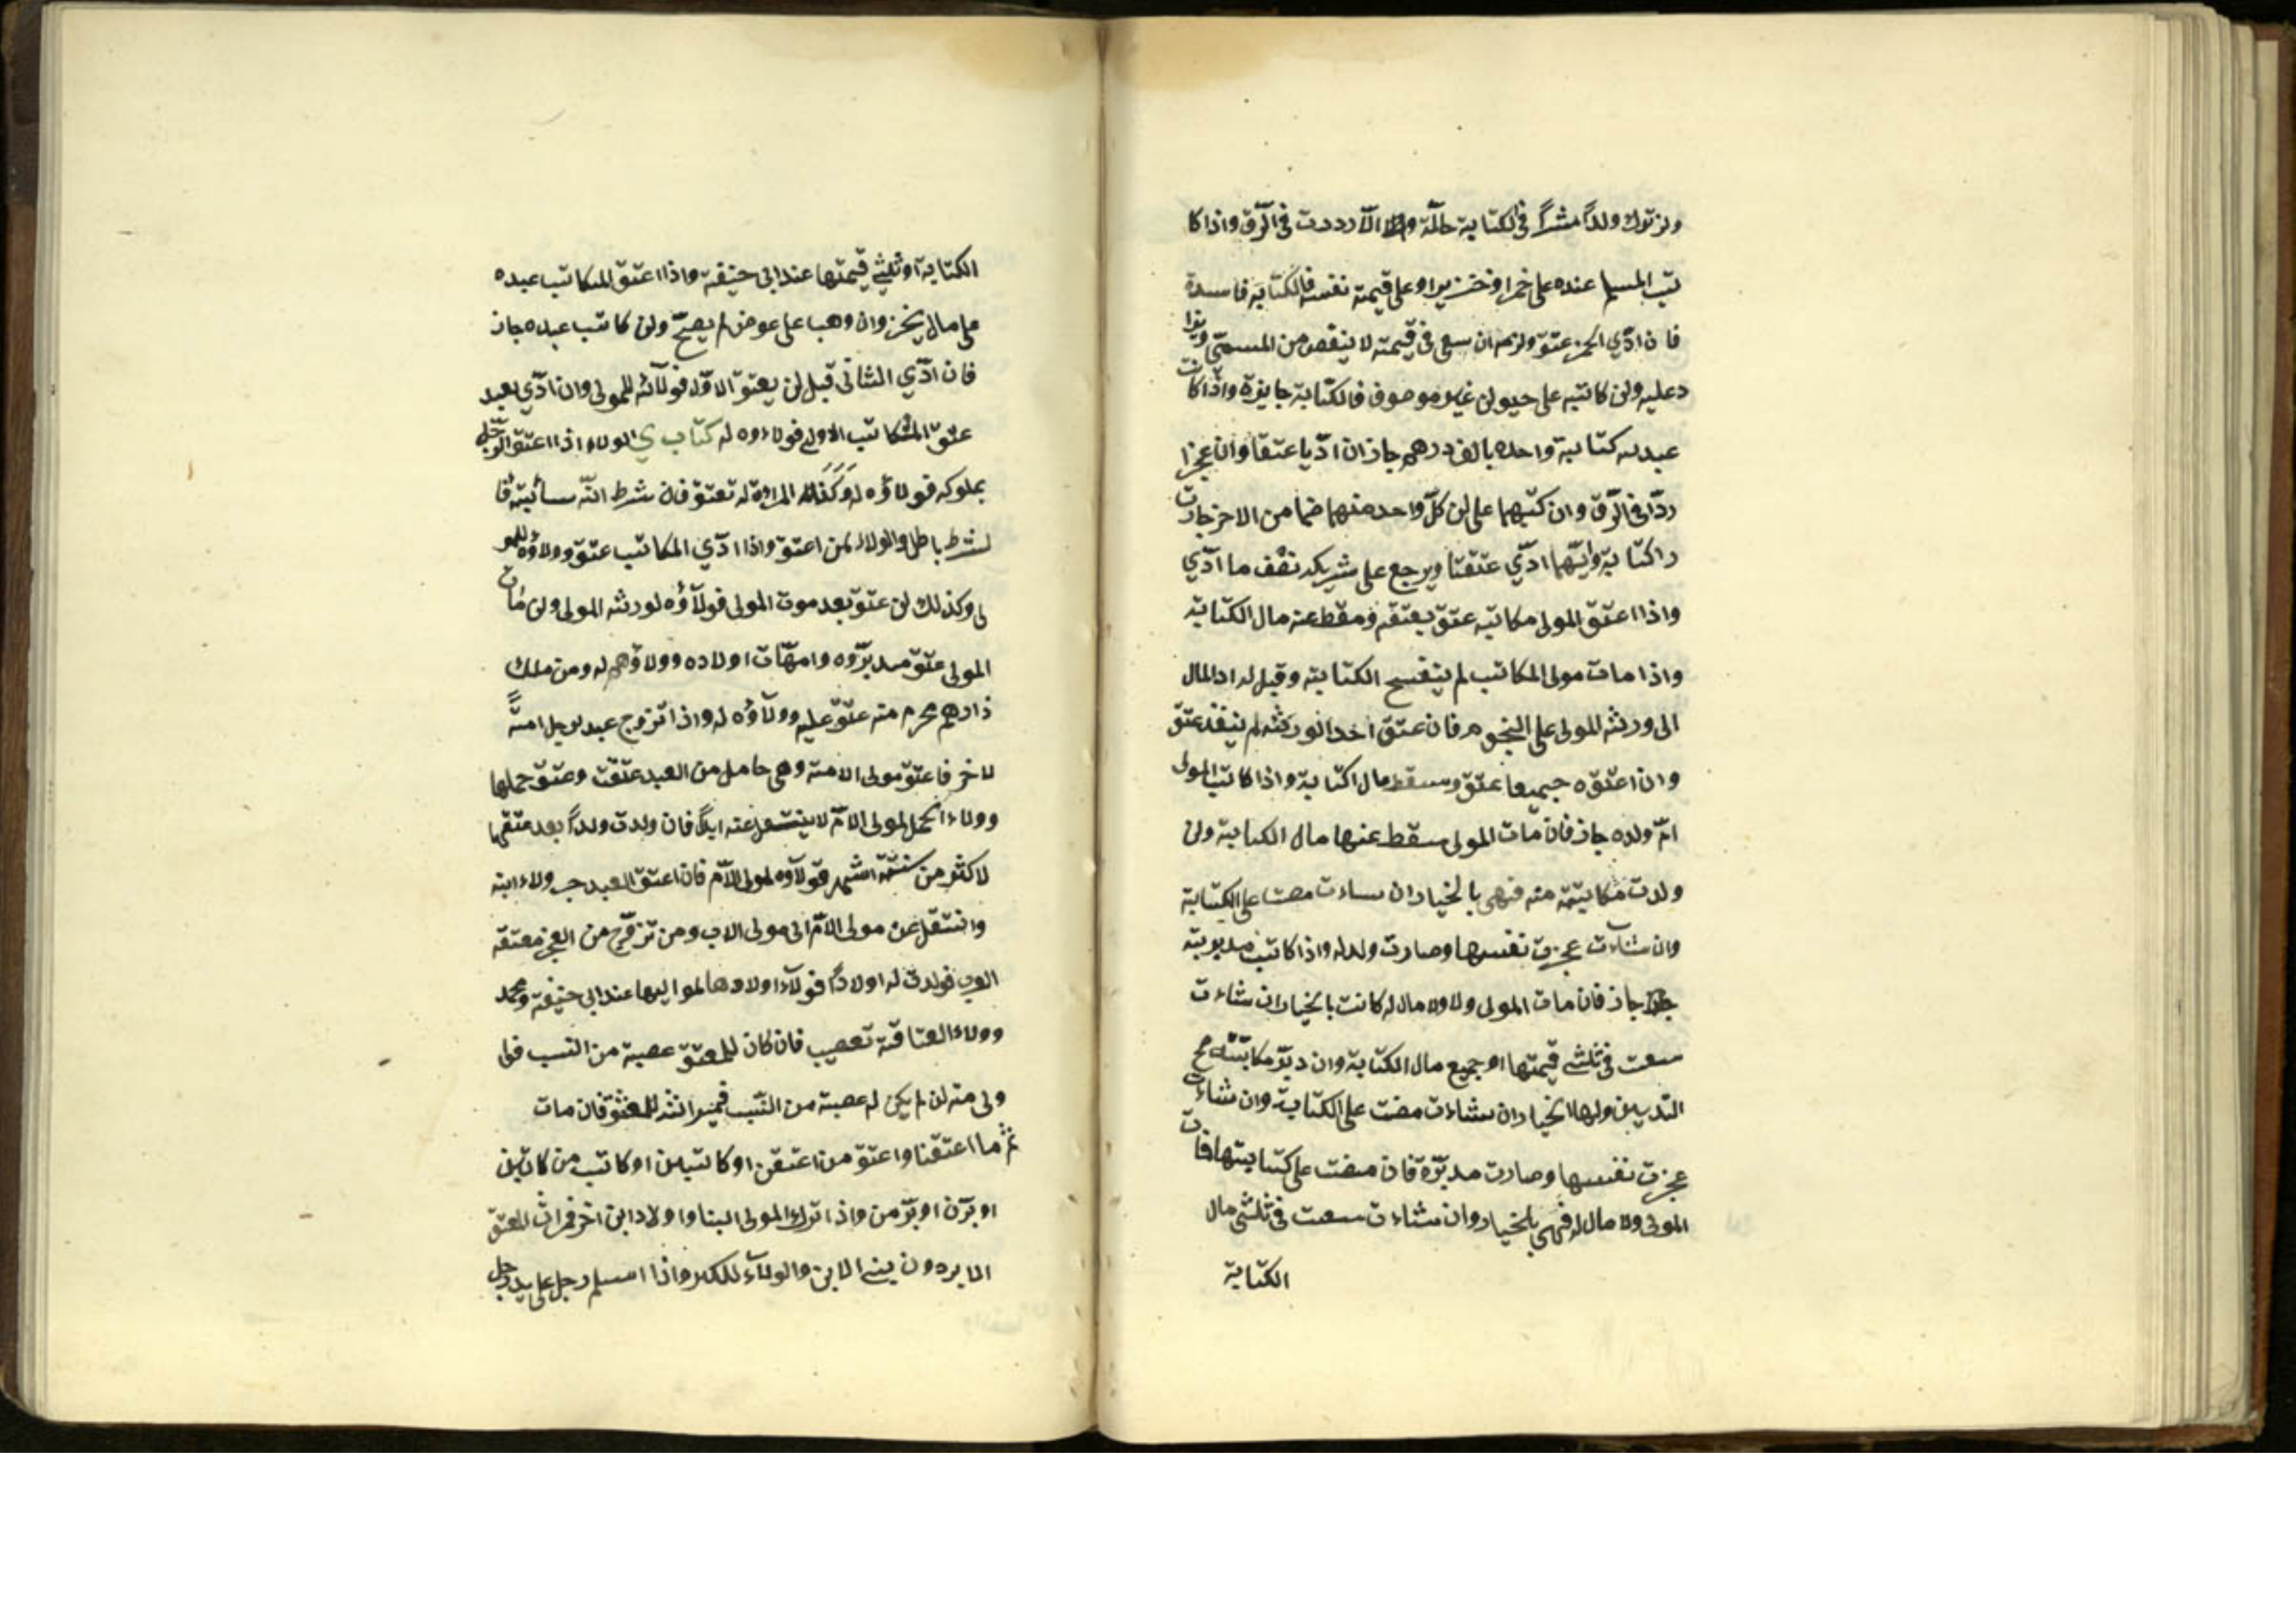 ولن ترك ولداً مشتراً في الكتابة حالّة والا رددت في الرّق واذا كا
تب المسلم عنده على خمر او خنزير او على قيمته نفسه فالكتابة فاسدة
فان ادّي الخمر عتق ولزمه ان سعى في قيمته لا ينقص من المسمّي ويزا
د عليه ولن كاتبه على حيولن غير موصوف فالكتابة جايزة واذا كاتب
عبديه كتابة واحده بالف درهم جاز ان ادّيا عتقا وان عجزا
ردّا في الرّق وان كتبهما على لن كلّ واحد منهما ضامن الاخر جازت
داكتابة وايّهما ادّي عتقتا ويرجع على شريكه نصف ما ادّي
واذا اعتق المولى مكاتبه عتق بعتقه ومقط عنه مال الكتابة
واذا مات مولى المكاتب لم يتفسح الكتابة وقيل له اد المال
الى ورثة المولى على النجوم فان عتق احد الورثة لم ينفذ عتق
وان اعتقوه جميعا عتق وسقط مال اكتابة واذا كاتب المولى
امّ ولده جاز فان مات المولى سقط عنها مال الكتابة ولن
ولدت مكاتبته منه فهى بالخيار ان ساءت مضت على الكتابة
وان شاءت عجزت نفسها وصارت ولد له واذا كاتب مدبرته
جاز فان مات المولى ولا مال له كانت بالخيار ان شاءت
سعت في ثلثي قيمتها او جميع مال الكتابة وان دبّر مكاتبته صح
التدبير ولها الخيار ان شاءت مضت على الكتابة وان شاءت
عجزت نفسها وصارت مدبّرة فان مضت على كتابتها فات
المولى ولا مال له فهى بالخيار وان شاءت سعت في ثلثي مال
الكتابة
الكتابة او ثلثي قيمتها عند ابى حنيفة واذا اعتق المكاتب عبده
على مال يخز وان وهب على عوض لم يصحّ ولن كاتب عبده جاز
فان ادّي الثاني قبل لن يعتق الاوّل فولآئه للمولى وان ادّي بعد
عتق المكاتب الاول فولاءوه له كتاب ي الولاء اذا اعتق الرّجل
مملوكه فولاؤه له وكذلك المراة له تعتق فان شرط انّه سائبة فا
لشرط باطل والولاء لمن اعتق واذا ادّي المكاتب عتق وولاؤه للمو
لى وكذلك لن عتق بعد موت المولى فولآؤه لورثة المولى ولن مات
المولى عتق مدبرّوه وامهّات اولاده وولاؤهم له ومن ملك
ذا رحم محرم منه عتق عليه وولآؤه له واذا تزوج عبد رجل امةً
لاخر فاعتق مولى الامة وهى حامل من العبد عتقت وعتق حملها
وولاء الحمل لمولى الامّ لا ينتقل عنه ابداً فان ولدت ولداً بعد عتقها
لاكثر من ستّة اشهر فولآوه لمولى الامّ فان اعتق العبد جب ولاء ابنه
وانتقل عن مولى الامّ الى مولى الاب ومن تزوّج من العجم معتقة
العرب فولدت له اولاداً فولآء اولادها لمواليها عند ابى حنيفة ومحمد
وولاء العتاقة تعصيب فان كان للمعتق عصبة من النسب فهى
ولى منه لن لم يكن له عصبة من النّسب فميراثه للمعتق فان مات
ثمّ ما اعتقنا واعتق من اعتقن او كاتبين او كاتب من كاتبن
او برّن او برّ من واذا ترك المولى ابنا واولاد ابن اخر فميراث المعتق
الابر دون بني الابن والولآء للكبر واذا اسلم رجل على يد رجل